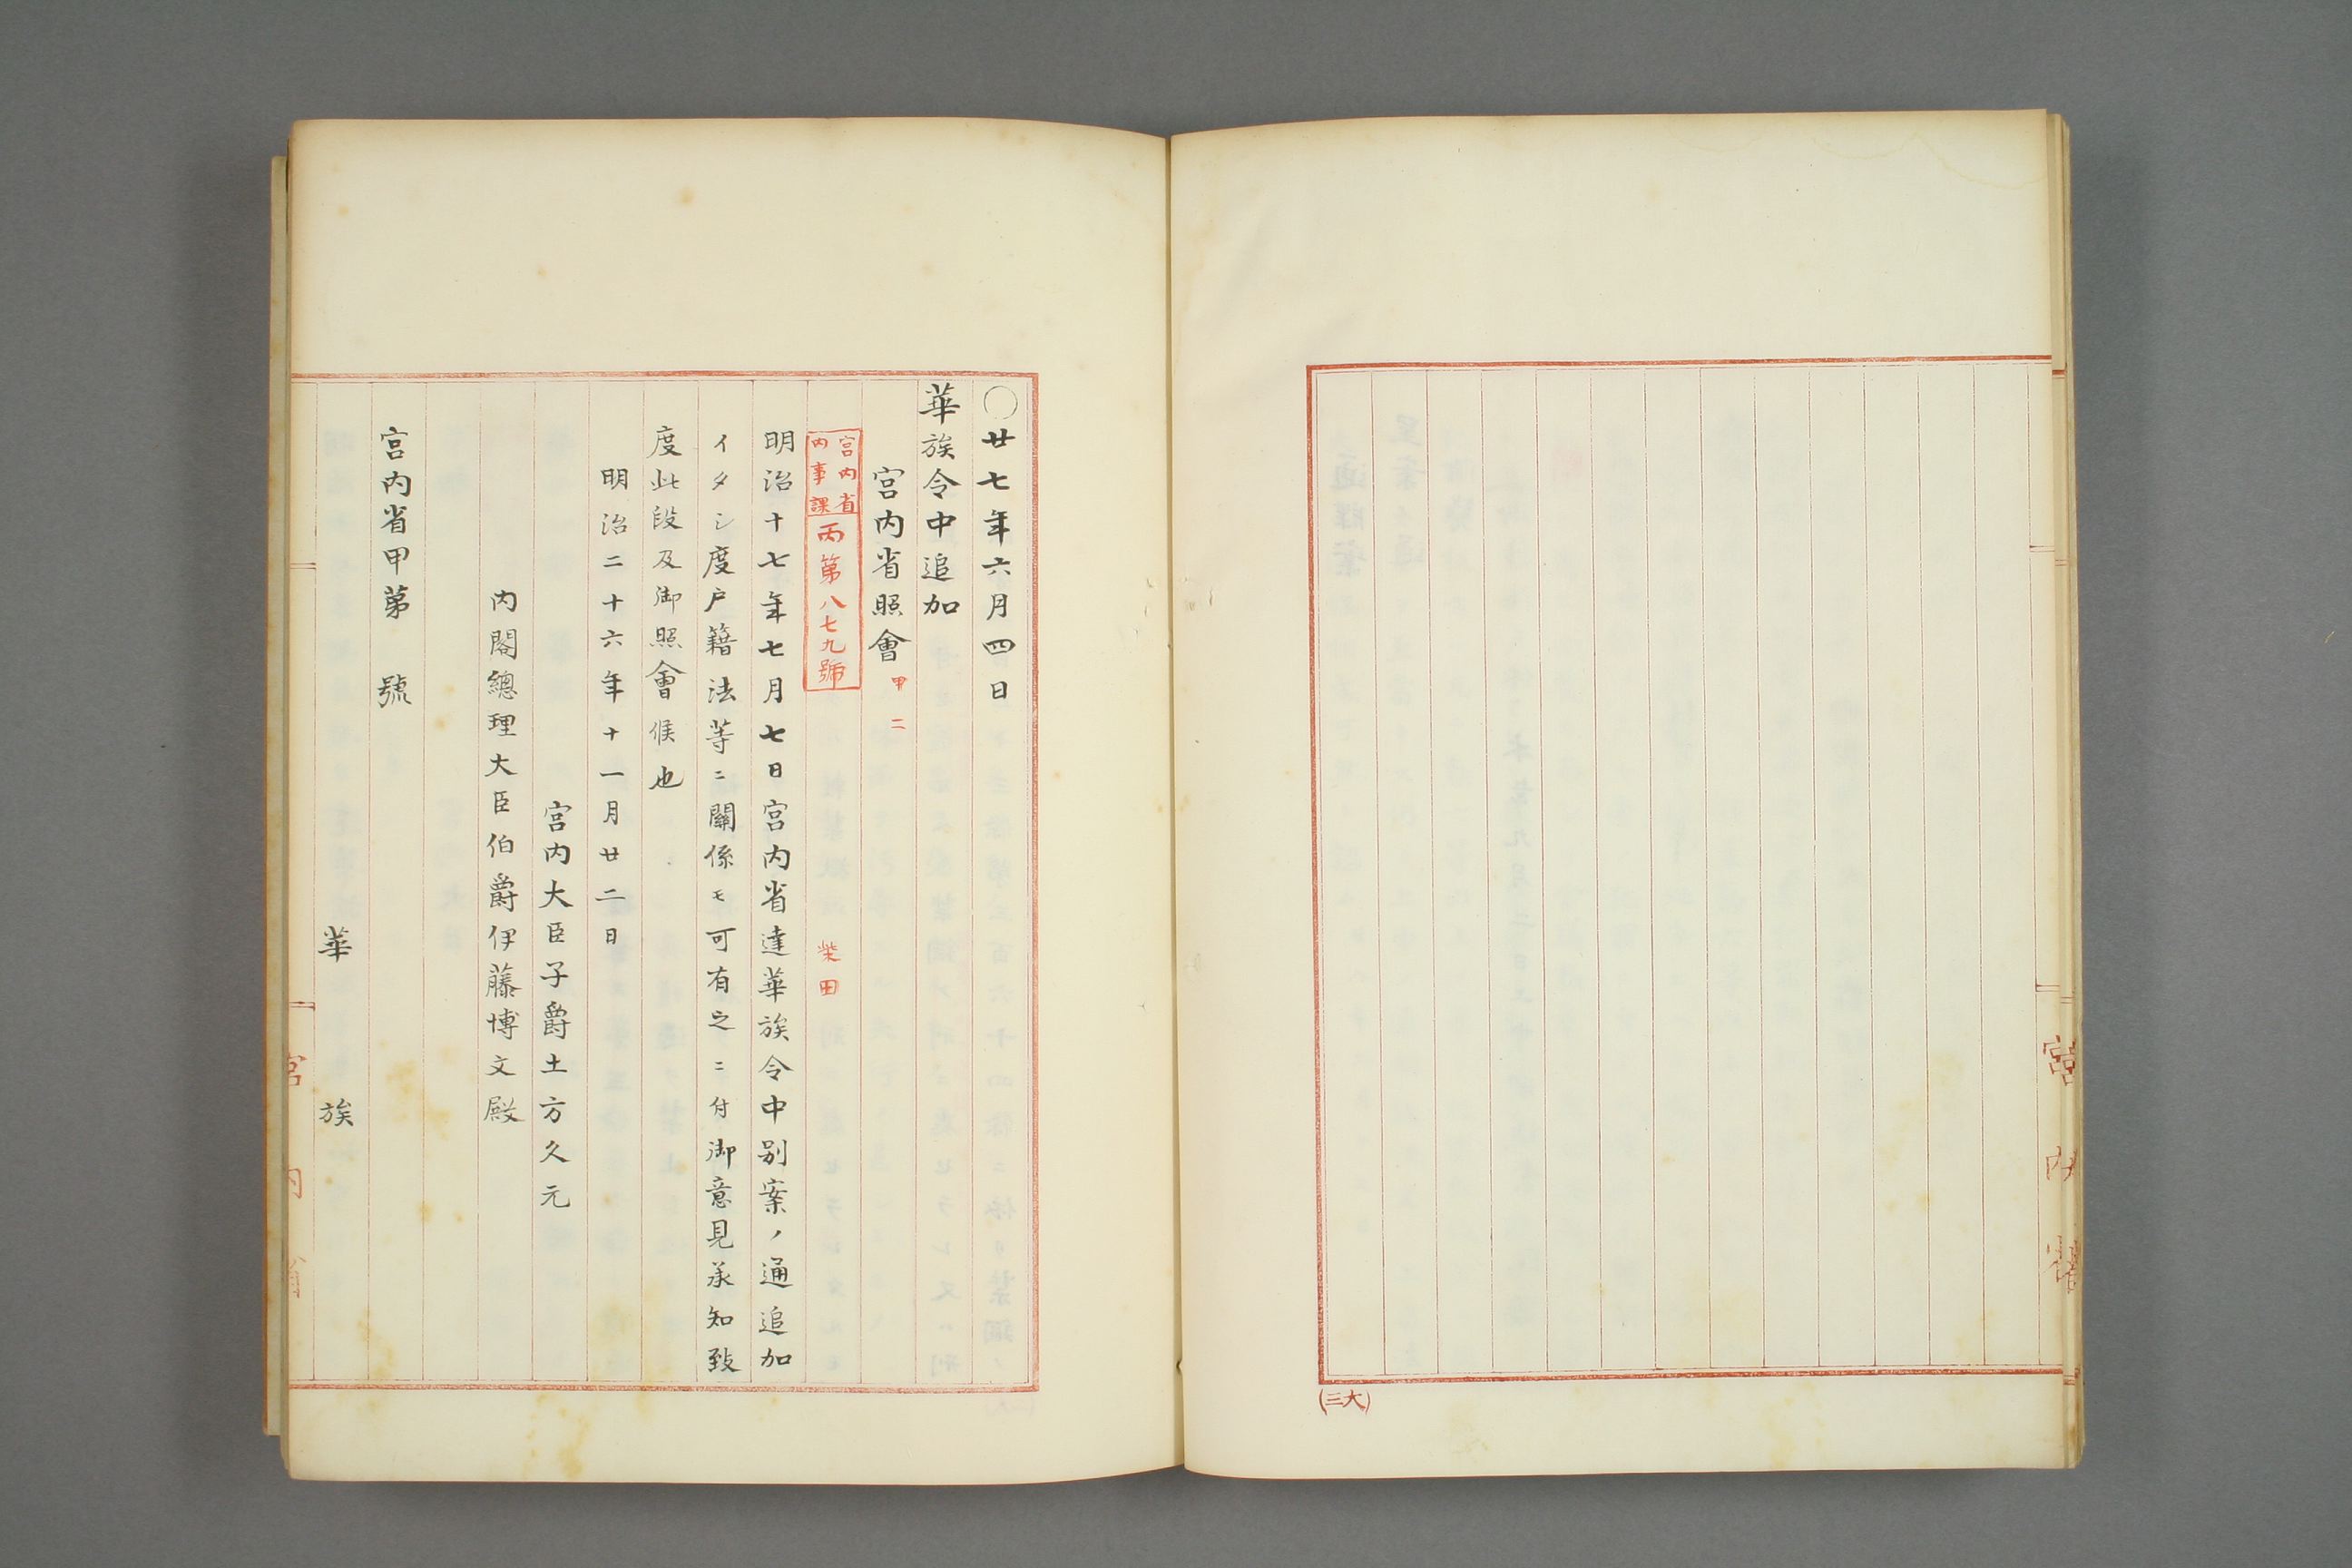 宮内省
(三大)
〇廿七年六月四日
華族令中追加
宮内省照會 甲二
宮内省
内事課
丙第八七九號
柴田
明治十七年七月七日宮内省達華族令中別案ノ通追加
イタシ度戸籍法等ニ關係モ可有之ニ付御意見承知致
度此段及御照會候也
明治二十六年十一月廿二日
宮内大臣子爵土方久元
内閣總理大臣伯爵伊藤博文殿
宮内省甲第 號
華族
宮内省